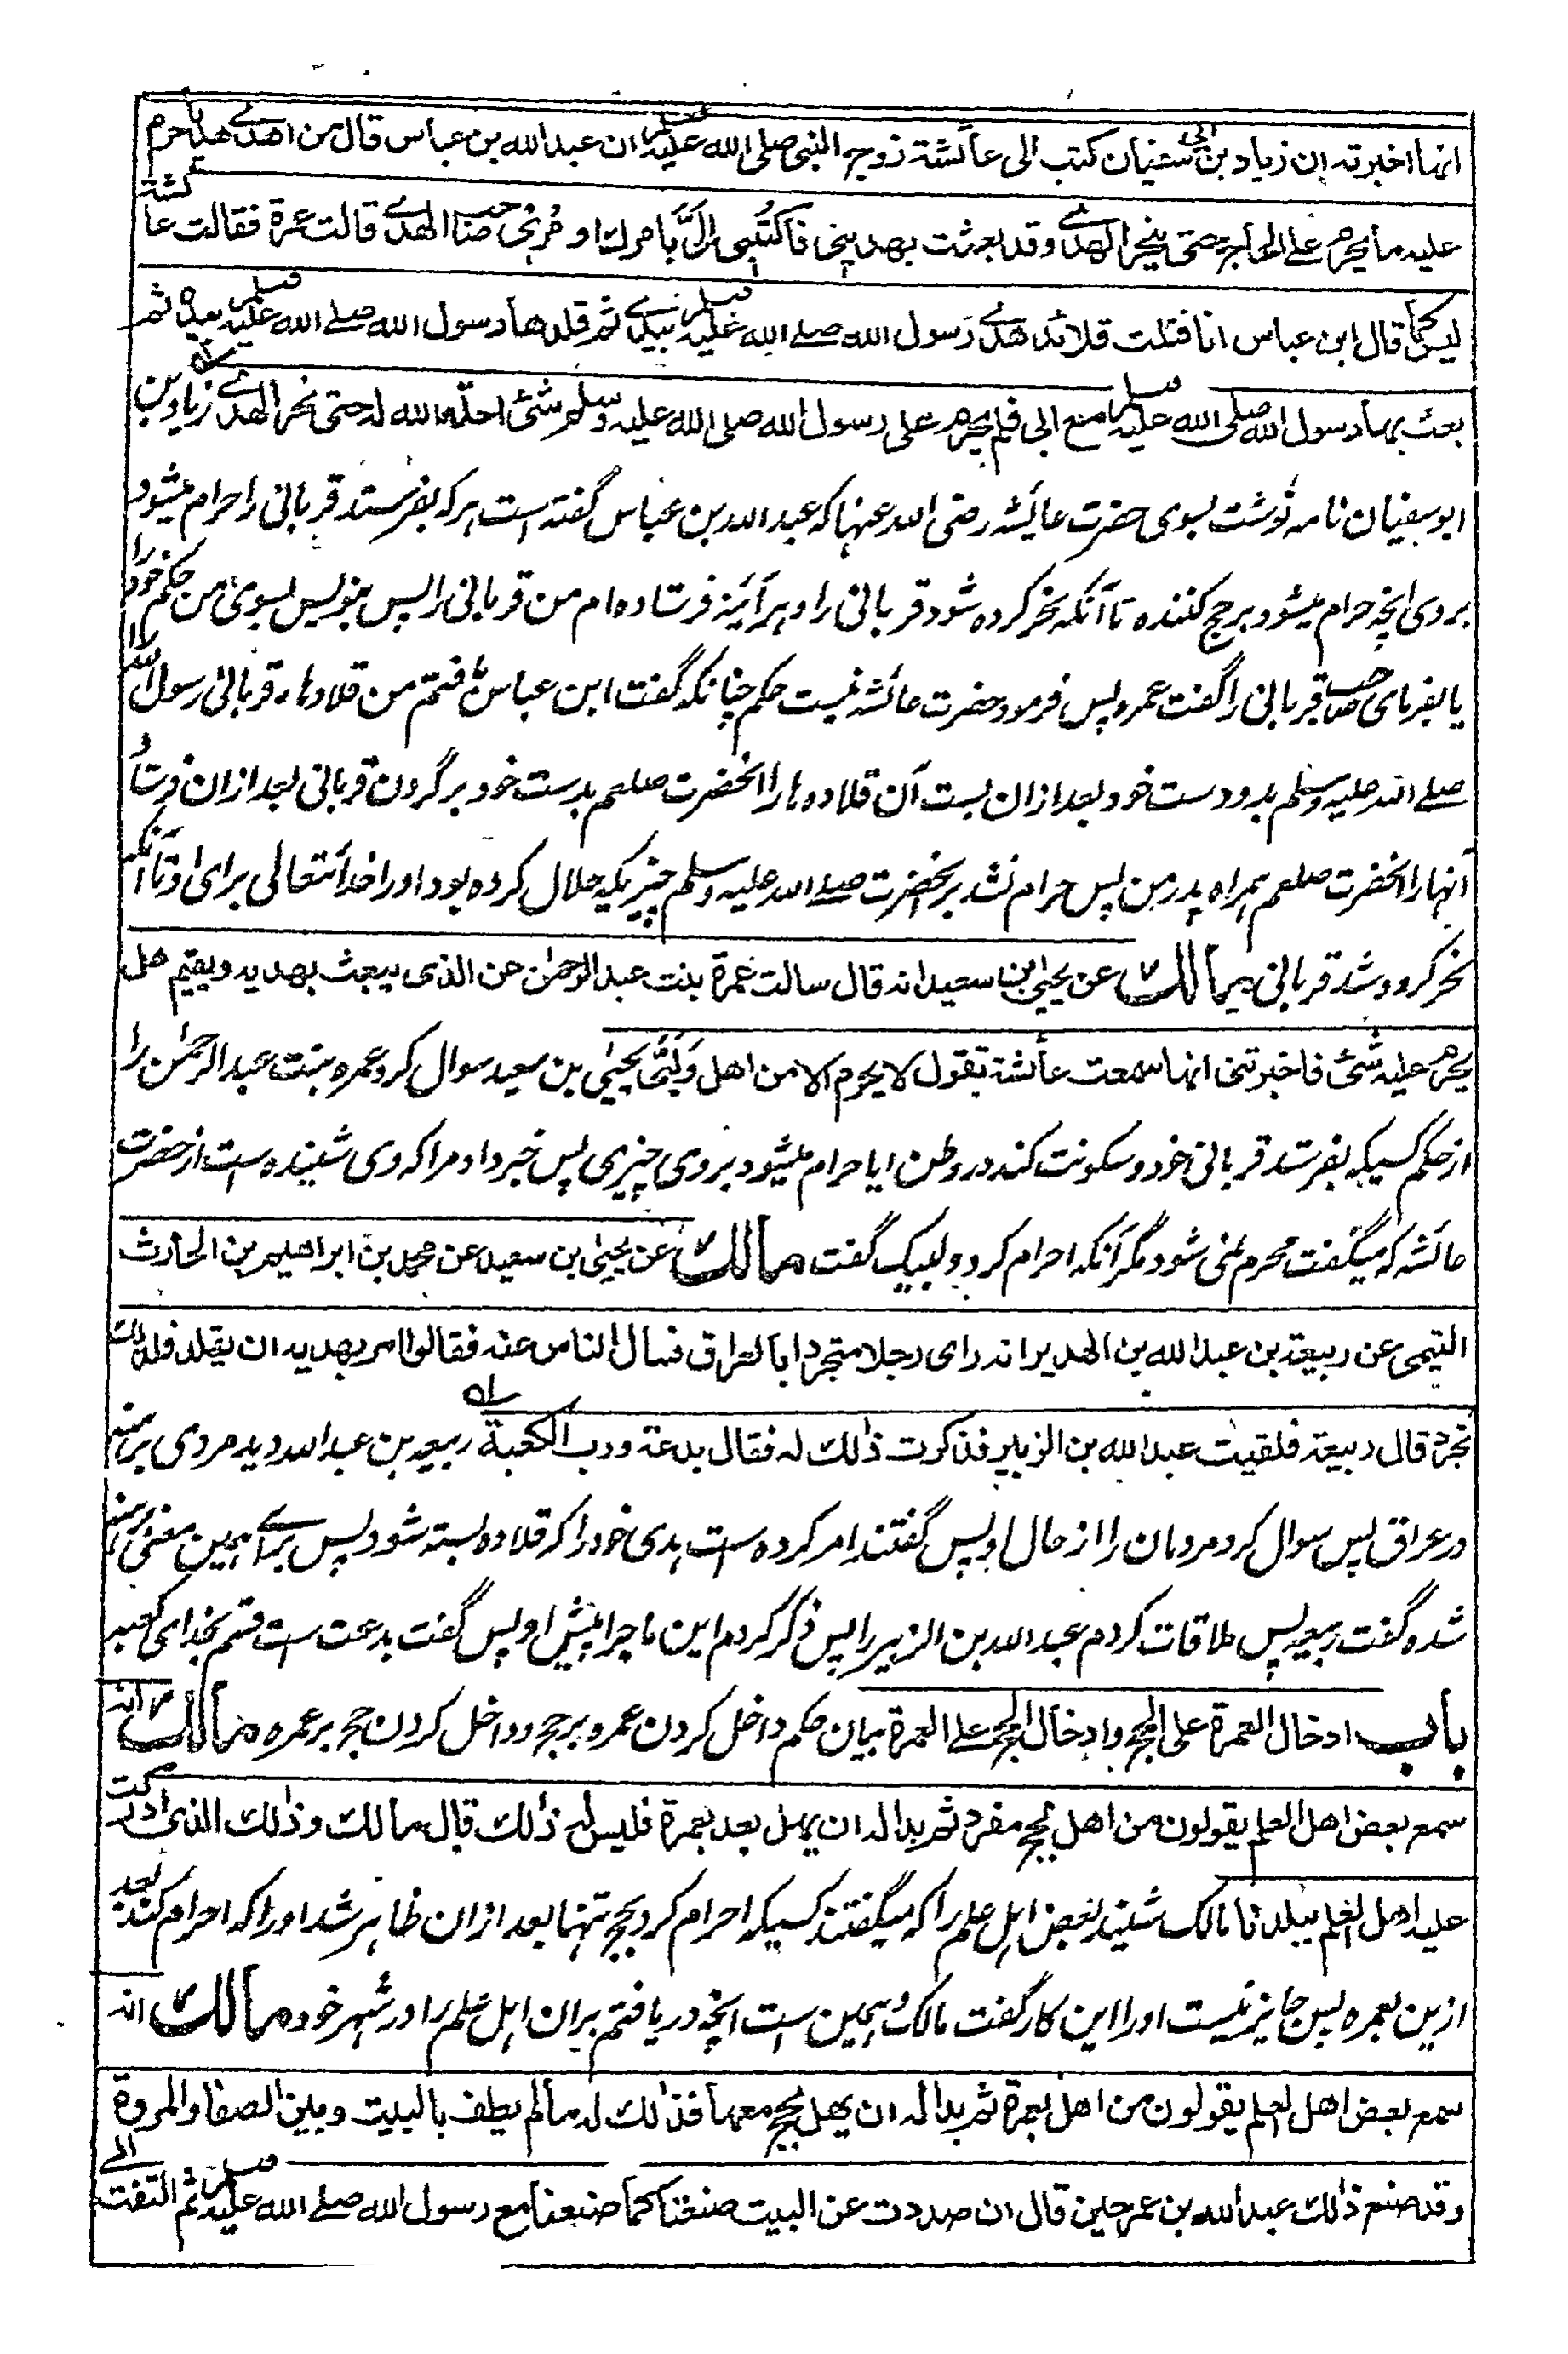 انها اخبرته ان زياد بن ابى سفيان كتب الى عائشة زوجه النبى صلى الله عليه وسلم ان عبد الله بن عباس قال من اهدى هديا حرم
عليه ما يحرم على الحاج حتى ينحر الهدى وقد بعثت بهديى فاكتبى الىَّ بامرك او مُرى صاحب الهدى قالت عمرة فقالت عائشة
ليس كما قال ابن عباس انا فتلت قلائد هدى رسول الله صلے الله عليه وسلم بيدى ثم قلدها رسول الله صلے الله عليه وسلم بيده ثم
بعث بها رسول الله صلى الله عليه وسلم مع ابى فلم يحرم على رسول الله صلى الله عليه وسلم شئ احله الله له حتى نحر الهدى زياد بن
ابوسفيان نامه نوشت بسوى حضرت عائشه رضى الله عنها كه عبد الله بن عباس گفته است هر كه بفرستد قربانى را حرام ميشود
بروى انچه حرام ميشود بر حج كننده تا آنكه نحر كرده شود قربانى را و هر آئينه فرستاده ام من قربانى را پس بنويس بسوى من حكم خود را
يا بفرماى صاحب قربانى را گفت عمره پس فرمود حضرت عائشه نيست حكم چنانكه گفت ابن عباس تافتم من قلادهاء قربانى رسول الله را
صلے الله عليه وسلم بدو دست خود بعد ازان بست آن قلادہ ہا را انحضرت صلعم بدست خود بر گردن قربانى بعد ازان فرستاد
آنها را انحضرت صلعم همراه پدر من پس حرام نشد بر انحضرت صلے الله عليه وسلم چيزيكه حلال كرده بود او را خدا تعالى براى او تا آنكه
نحر كرده شد قربانى مالك عن يحيى بن سعيد انه قال سالت عمرة بنت عبد الرحمن عن الذى يبعث بهديه ويقيم هل
يحرم عليه شئ فاخبرتنى انها سمعت عائشة تقول لا يحرم الا من اهل ولَبّٰى يحيى بن سعيد سوال كرد عمره بنت عبد الرحمن را
از حكم كسيكه بفرستد قربانى خود و سكونت كند در وطن ايا حرام ميشود بروى چيزى پس خبر داد مرا كه وى شنيده ست از حضرت
عائشه كه ميگفت محرم نمى شود مگر آنكه احرام كرد و لبيك گفت مالك عن يحيى بن سعيد عن محمد بن ابراهيم بن الحارث
التيمى عن ربيعة بن عبد الله بن الهدير انه راى رجلا متجردا بالعراق فسال الناس عنه فقالوا امر بهديه ان يقلد فلذلك
تجرد قال ربيعة فلقيت عبد الله بن الزبير فذكرت ذالك له فقال بدعة ورب الكعبة ربيعه بن عبد الله ديد مردى برهنه
در عراق پس سوال كرد مردمان را از حال او پس گفتند امر كرده ست هدى خود را كه قلاده بسته شود پس براے همين معنى برهنه
شده گفت ربيعه پس ملاقات كردم عبد الله بن الزبير را پس ذكر كردم اين ماجرا پيش او پس گفت بدعت ست قسم بخداى كعبه
باب ادخال العمرة على الحج وادخال الحج على العمرة بيان حكم داخل كردن عمره بر حج و داخل كردن حج بر عمره مالك انه
سمع بعض اهل العلم يقولون من اهل بحج مفرد ثم بدا له ان يهل بعد بعمرة فليس له ذالك قال مالك وذالك الذى ادركت
عليه اهل العلم ببلدنا مالك شنيد بعض اهل علم را كه ميگفتند كسيكه احرام كرد بحج تنها بعد ازان ظاهر شد او را كه احرام كند بعد
ازين بعمره پس جايز نيست او را اين كار گفت مالك و همين ست انچه دريافتم بران اهل علم را در شهر خود مالك انه
سمع بعض اهل العلم يقولون من اهل بعمرة ثم بدا له ان يهل بحج معها فذالك له ما لم يطف بالبيت وبين الصفا والمروة
وقد صنع ذالك عبد الله بن عمر حين قال ان صددت عن البيت صنعنا كما صنعنا مع رسول الله صلے الله عليه وسلم ثم التفت الى